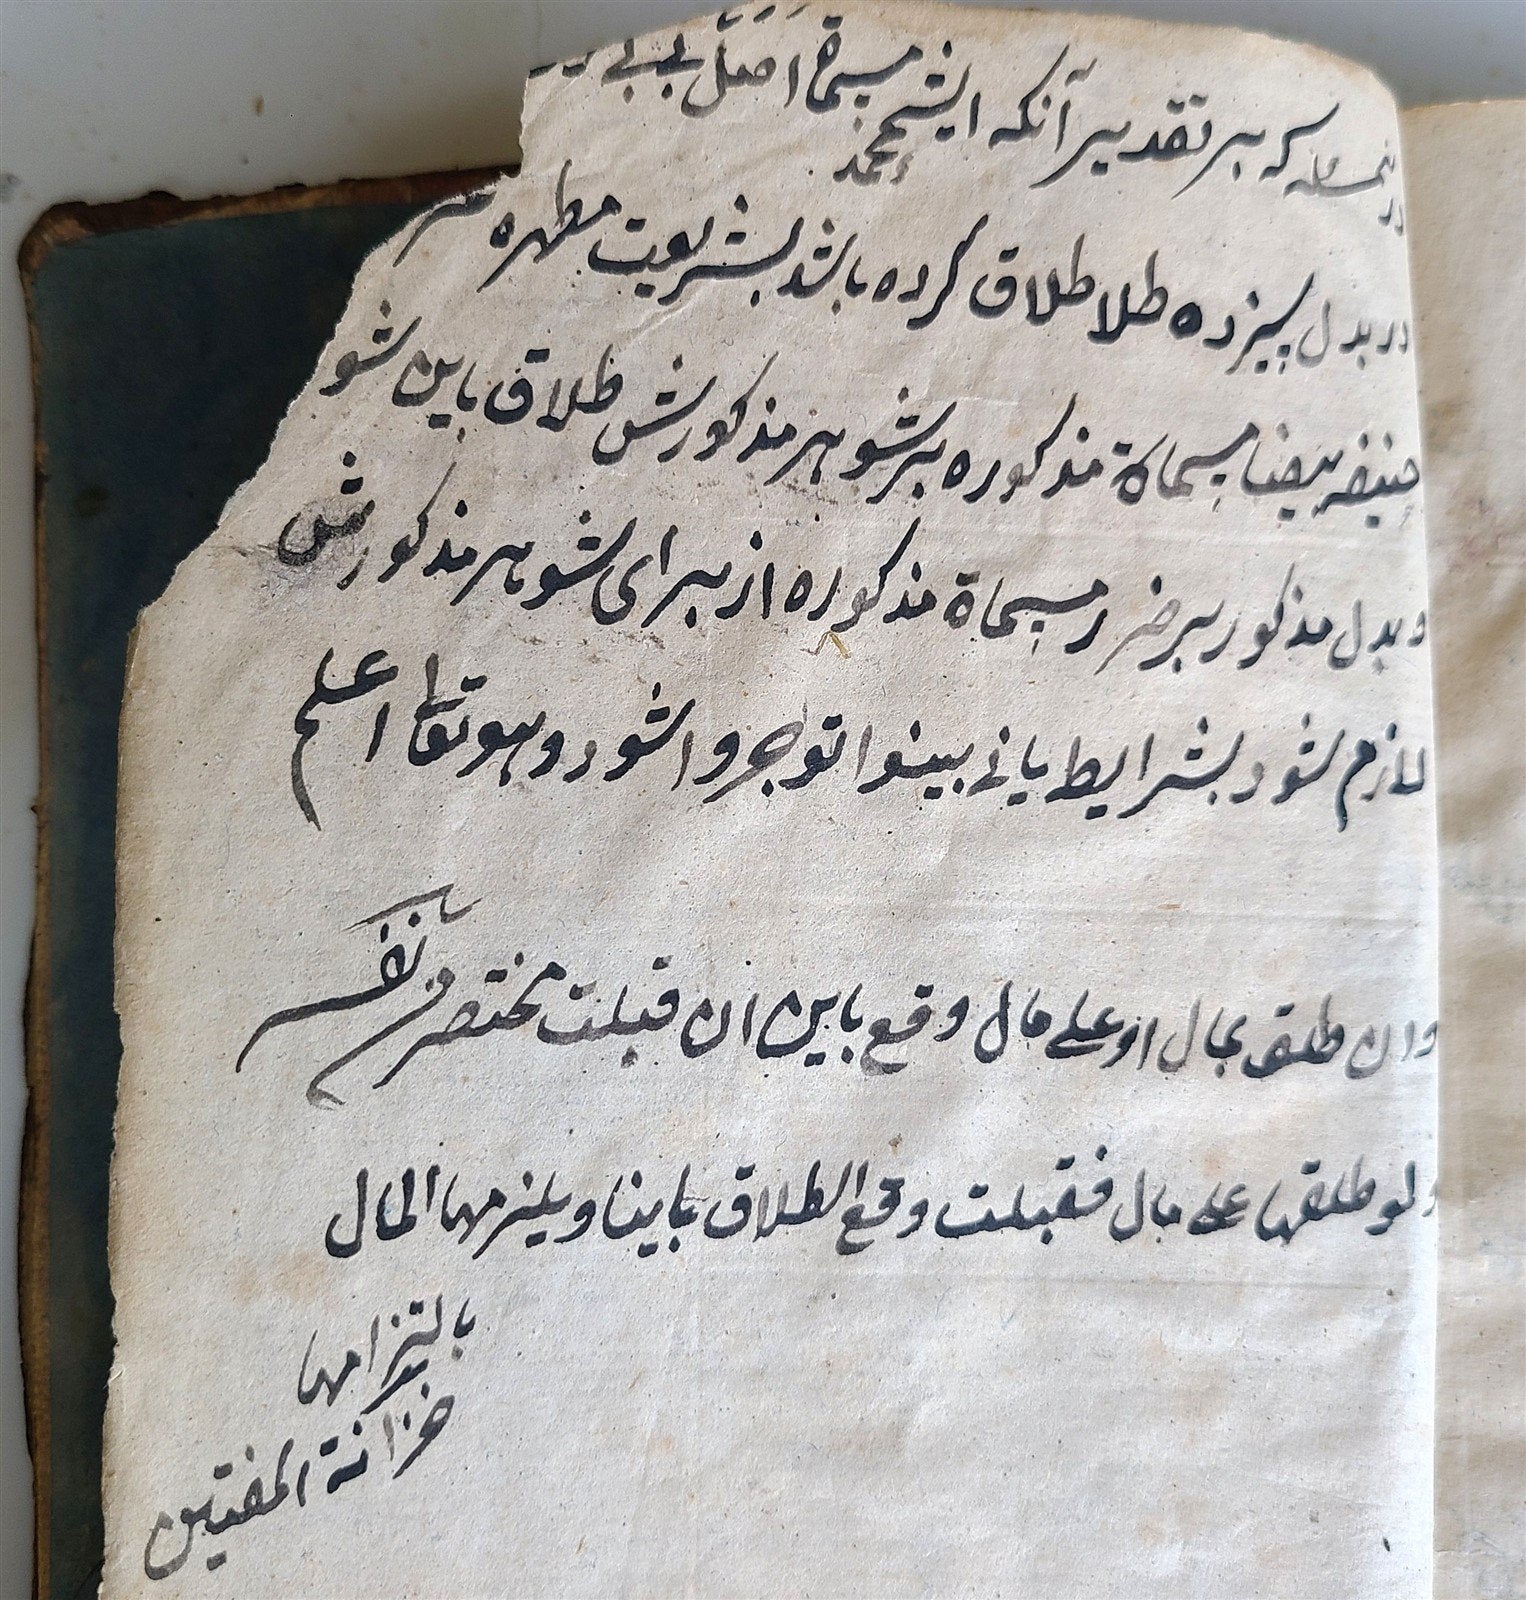 درینمسئله که بر تقدیر آنکه ایشمحمد مسماة افضل بی بی
در بدل سیزده طلا طلاق کرده باشد بشریعت مطهره
حنیفه بیضا مسماة مذکوره بر شوهر مذکورش طلاق باین شو
و بدل مذکور بر مسماة مذکوره از برای شوهر مذکورش
لازم شود بشرایط یانی بینوا توجروا شود و هو تعا اعلم
وان طلق بمال او علی مال وقع باین ان قبلت مختصر وقایه
ولو طلقها علی مال فقبلت وقع الطلاق باینا ویلزمها المال
بالتزامها
خزانة المفتین